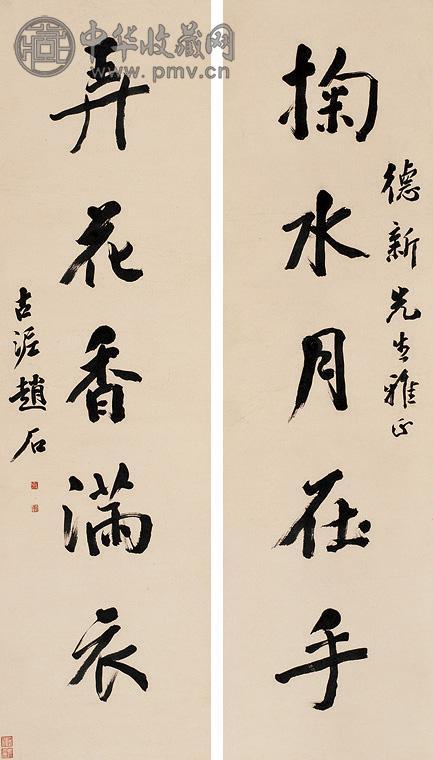 掬水月在手
德新先生雅正
弄花香满衣
古泥趙石
中华收藏网
www.pmv.cn